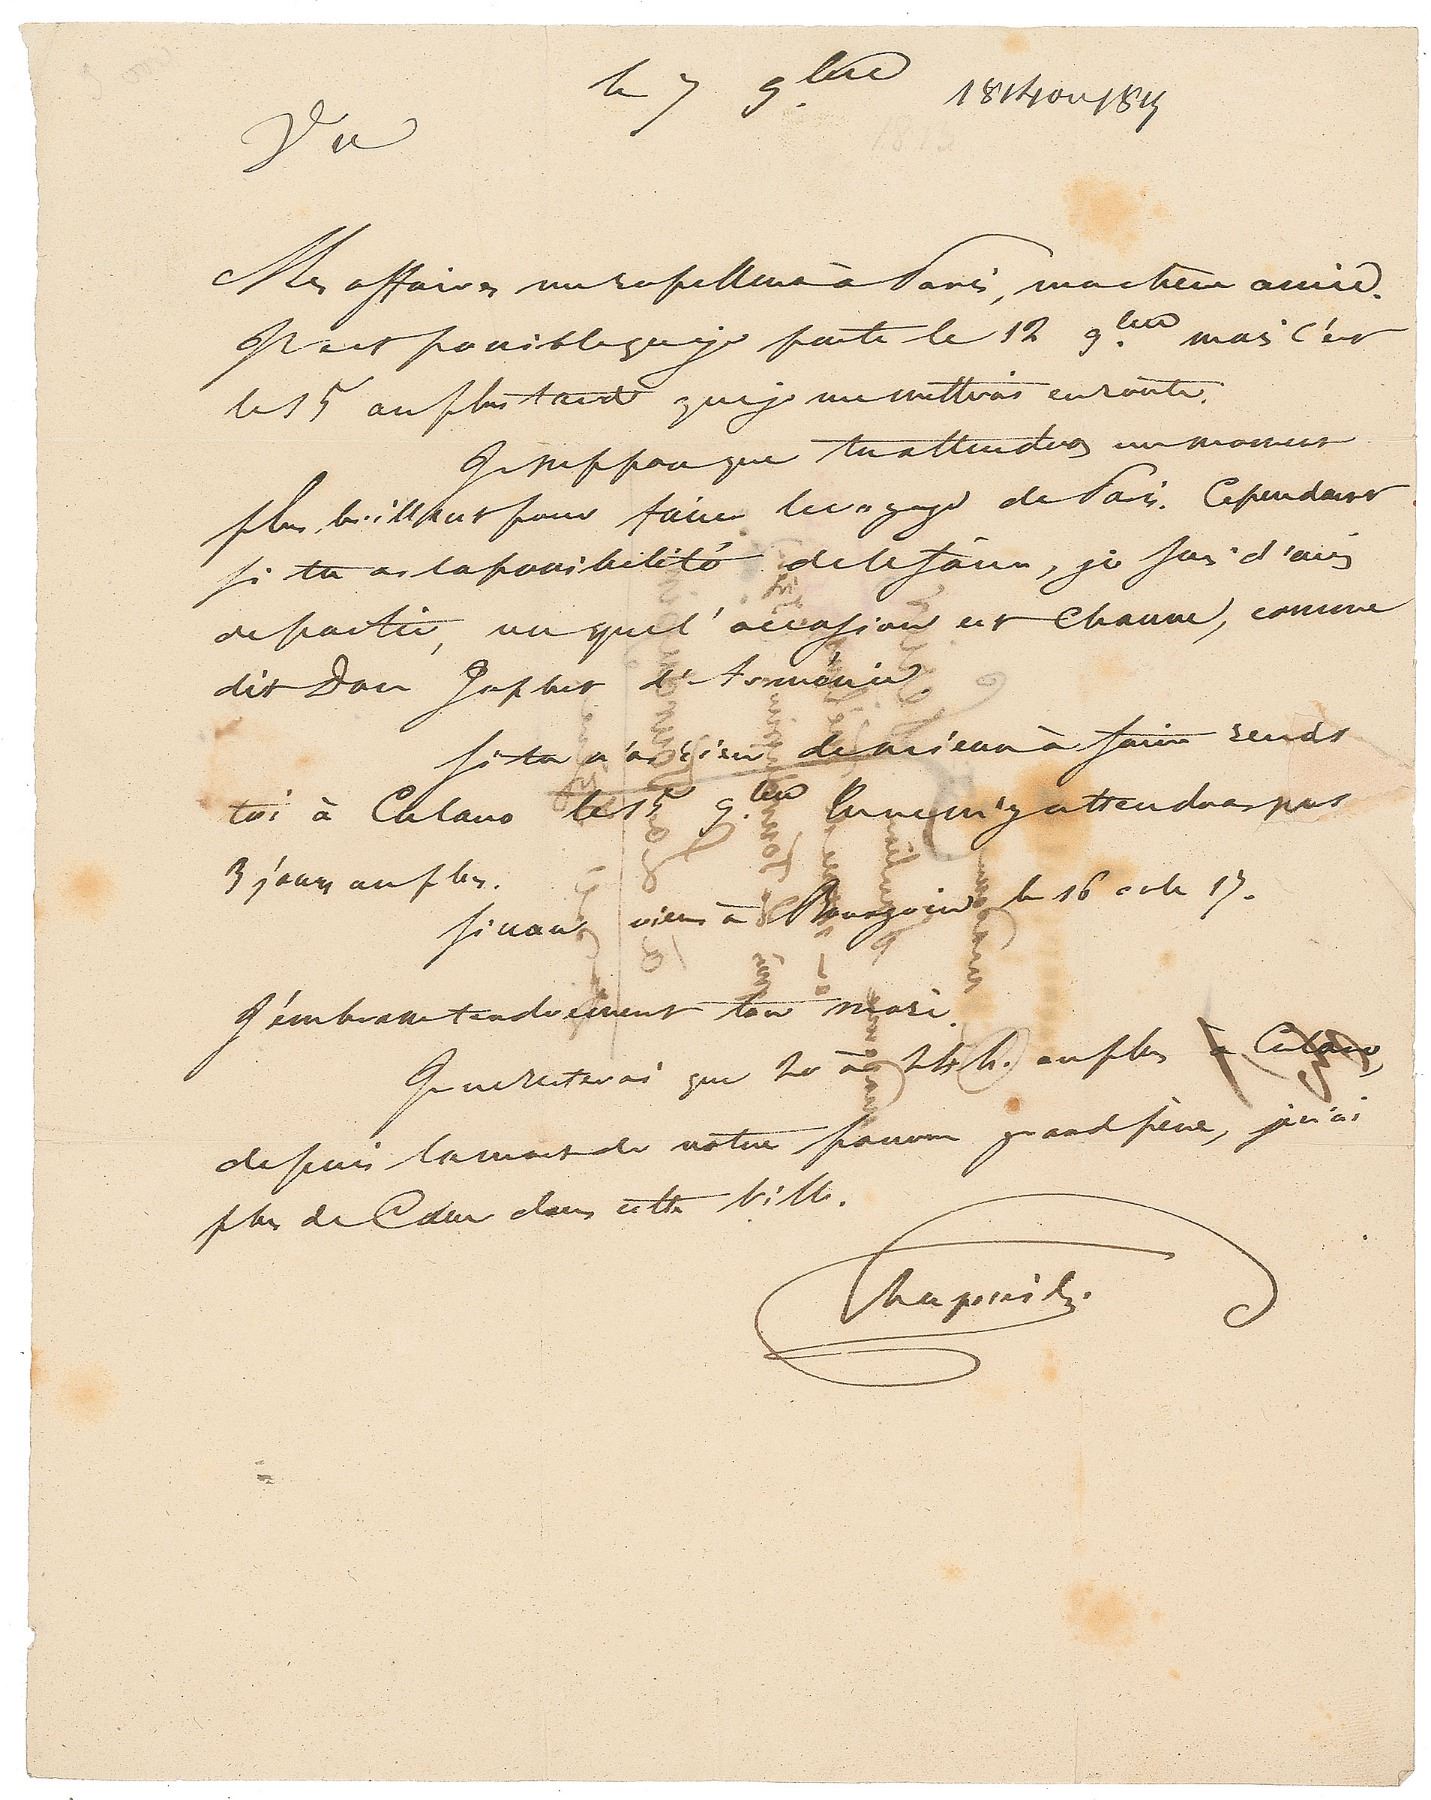 le 7 9.bre 1814 ou 1815
Vu
Mes affaires me rapellent à Paris, ma chère amie.
Il est possible que je parte le 12 9.bre mais c'est
le 15 au plus tard que je me mettrai en route.
Je suppose que tu attendras un moment
plus brillant pour faire le voyage de Paris. Cependant
si tu as la possibilité de le faire, je suis d'avis
de partir, vu que l'occasion est chauve, comme
dit Don Japhet d'Arménie
Si tu n'as rien de mieux à faire rends
toi à Cularo le 15 9.bre Tu ne m'y attendras pas
3 jours au plus.
Sinon viens à Bourgoin le 16 ou le 17.
J'embrasse tendrement ton mari.
Je ne resterai que 20 à 24 h. au plus à Cularo,
depuis la mort de notre pauvre grand père, je n'ai
plus de Cœur dans cette Ville.